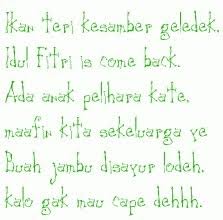 Ikan teri kesamber geledek.
Idul Fitri is come back.
Ada anak pelihara kate.
maafin kita sekeluarga ye
Buah jambu disayur lodeh.
kalo gak mau cape dehhh.